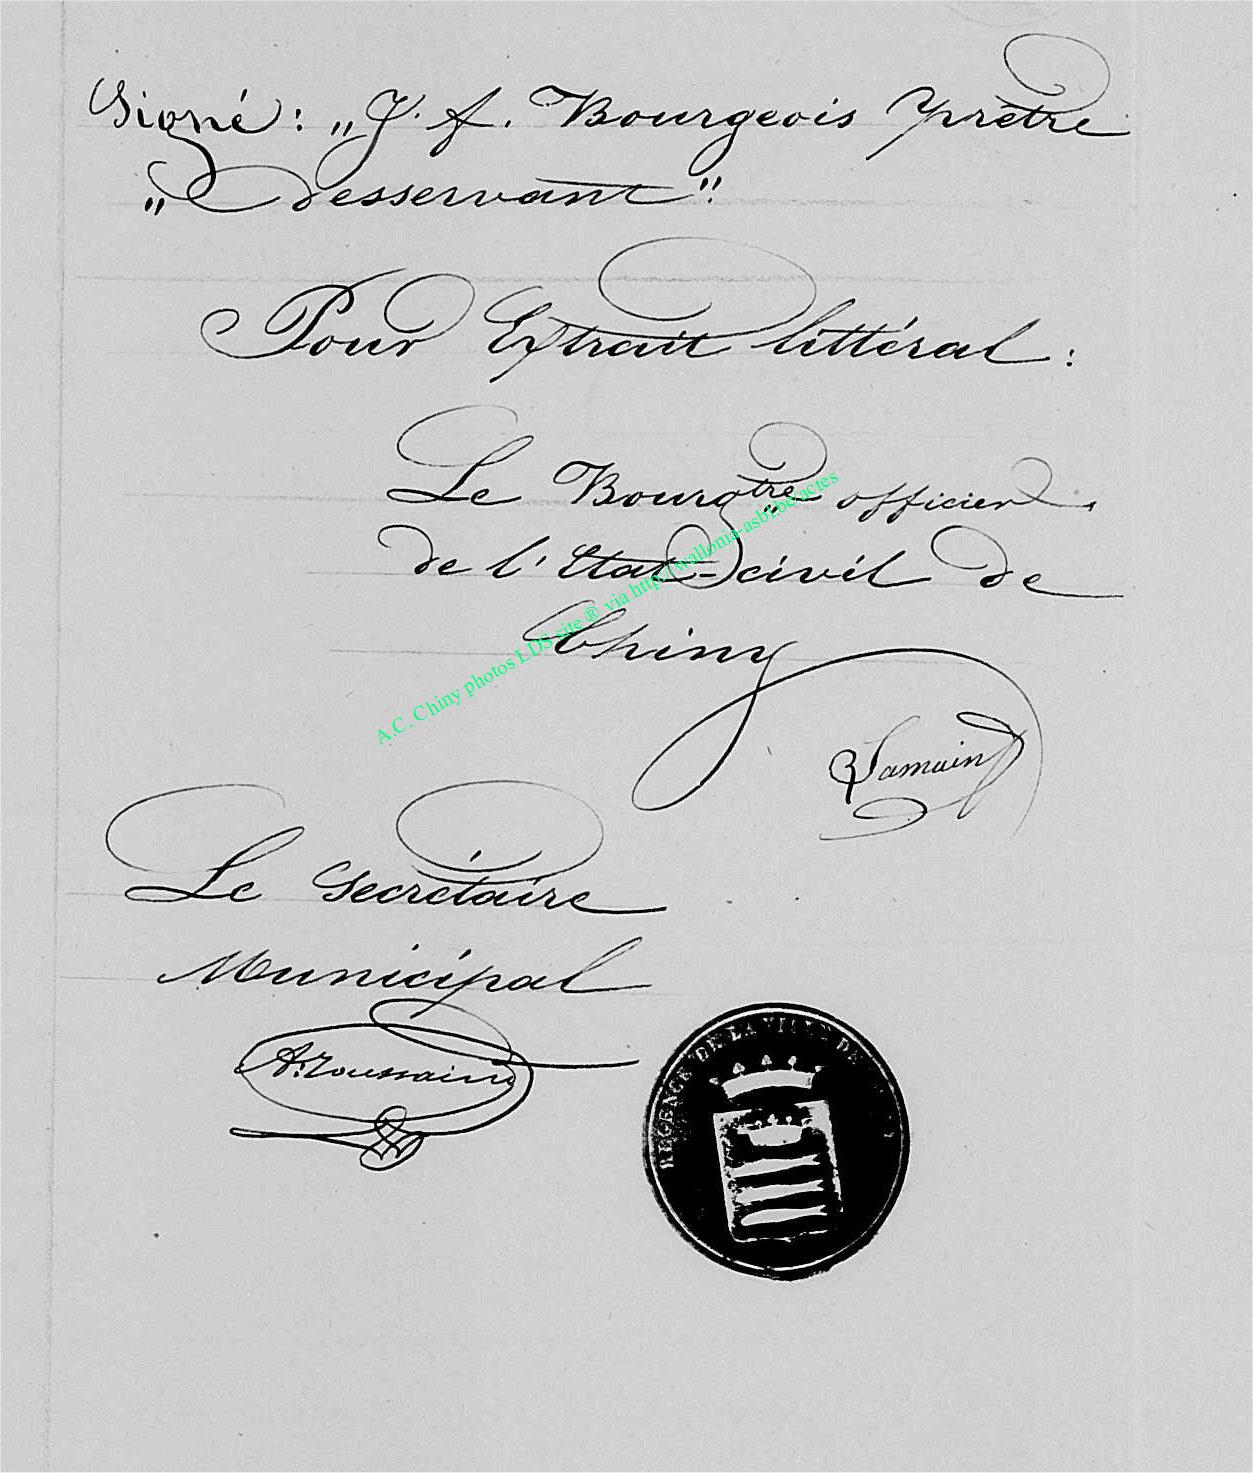 Signé: „J. A. Bourgeois prêtre
„desservant":
Pour Extrait littéral:
Le Bourgtre officier
de l'Etat-civil de
Chiny
A.C. Chiny photos LDS site ® via http://wallonia-asbl.be/actes
Le Secrétaire
Municipal
A. Toussaint
REGENCE DE LA VILLE DE